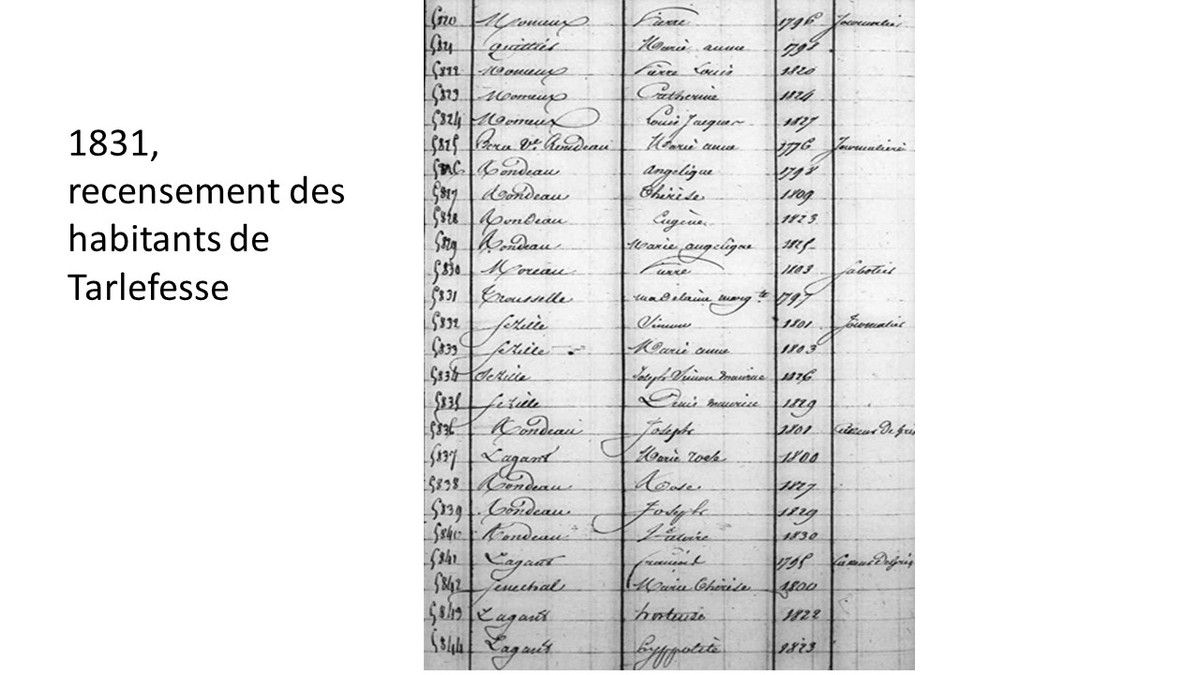 1831,
recensement des
habitants de
Tarlefesse
5820 Momeux Pierre 1796 Journalier
5821 Marie anne 1798
5822 Momeux Pierre Louis 1820
5823 Momeux Catherine 1824
5824 Momeux Louis Jacques 1827
5825 Vve Rondeau Marie anne 1776 Journalière
5826 Rondeau angelique 1798
5827 Rondeau Thérèse 1809
5828 Rondeau Eugène 1823
5829 Rondeau Marie angelique 1825
5830 Moreau Pierre 1803 Sabotier
5831 Trousselle madelaine margte 1797
5832 Sezille Simon 1801 Journalier
5833 Sezille Marie anne 1803
5834 Sezille Joseph Simon maurice 1826
5835 Sezille Denis maurice 1829
5836 Rondeau Joseph 1801 De Grès
5837 Lagant Marie rose 1800
5838 Rondeau Rose 1827
5839 Rondeau Joseph 1829
5840 Rondeau 1830
5841 Lagant 1795 De Grès
5842 Senechal Marie Thérèse 1800
5843 Lagant hortense 1822
5844 Lagant hyppolite 1823